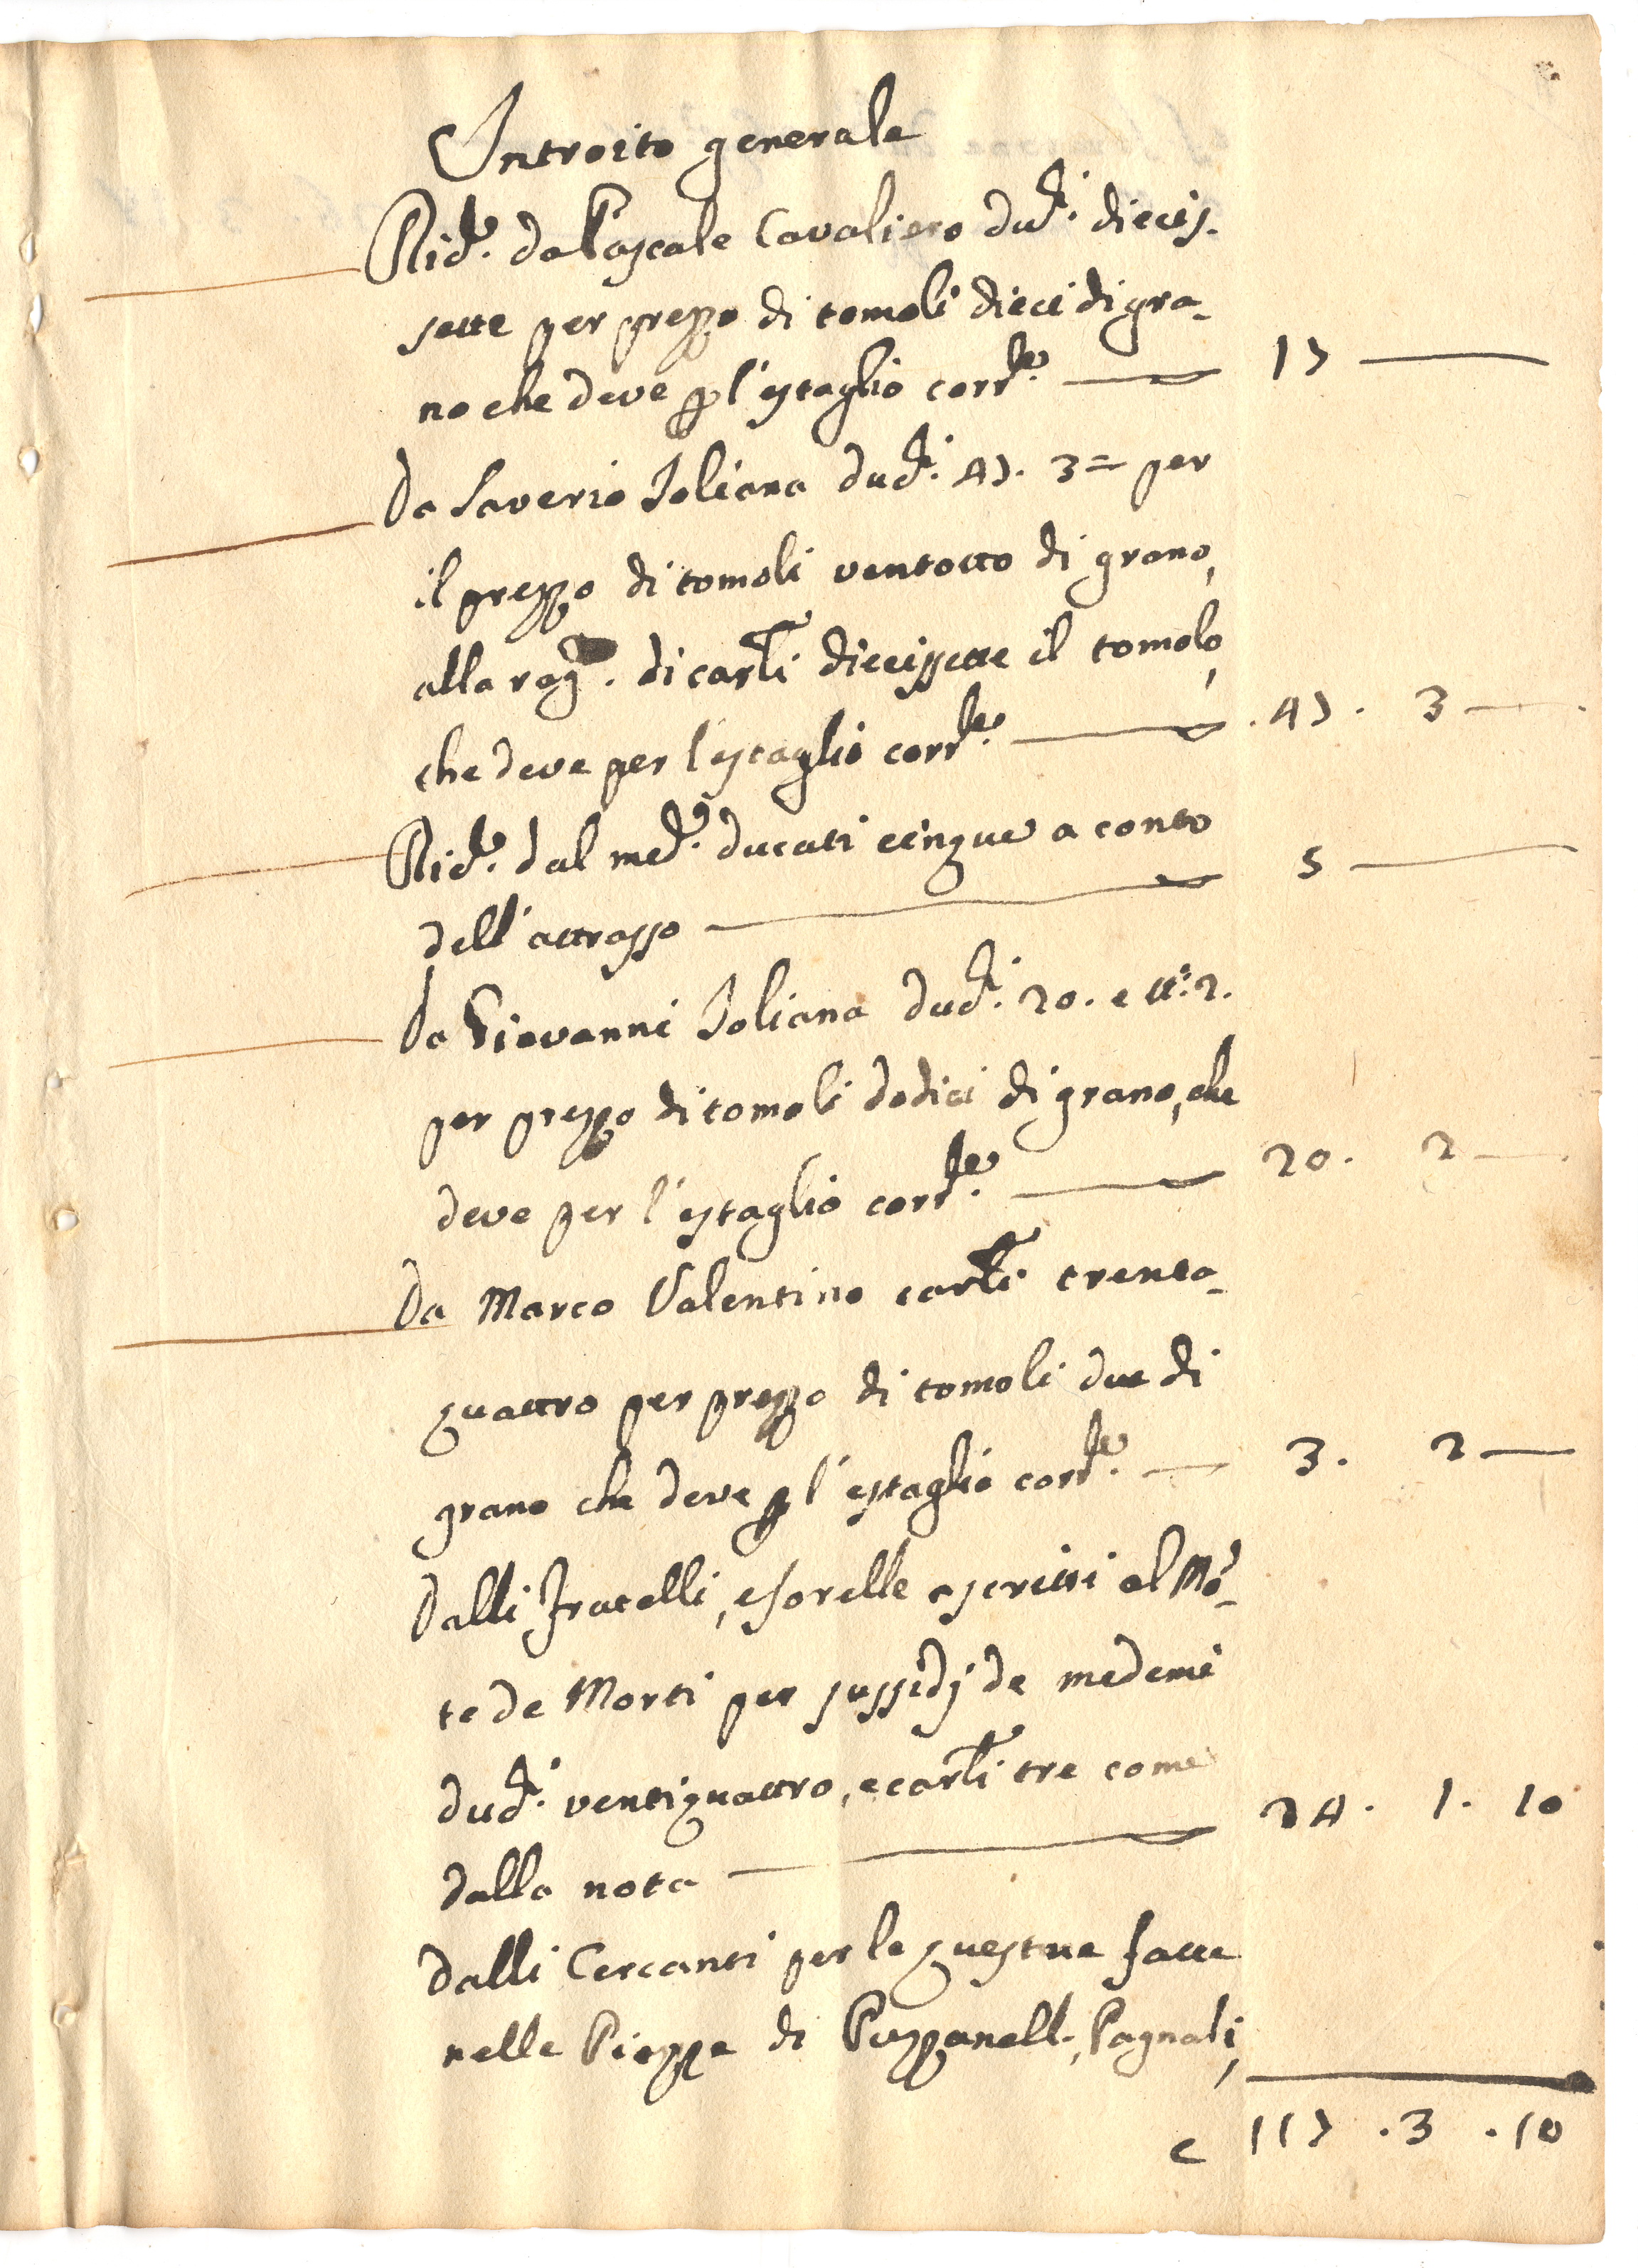 Introito generale
Ricd.e da Pascale Cavaliero dud.i diecis-
sette per prezzo di tomoli dieci di gra-
no che deve p l'estaglio corr.te 17
Da Saverio Joliana dud.i 47. 3= per
il prezzo di tomoli ventotto di grano,
alla rag. di carl.i diecissette il tomolo,
che deve per l'estaglio corr.te 47. 3
Ricd.e dal med.o ducati cinque a conto
dell'attrasso 5
Da Giovanni Joliana dud.i 20. e tt.i 2.
per prezzo di tomoli dodici di grano, che
deve per l'estaglio corr.te 20. 2
Da Marco Valentino carl.i trenta-
quattro per prezzo di tomoli due di
grano che deve p l'estaglio corr.te 3. 2
Dalli Fratelli, e sorelle ascritti al Mō-
te de Morti per sussidj de medemi
dud.i ventiquattro, e carl.i tre come
dalla nota 24. 1. 10
Dalli Cercanti per le questue fatte
nelle Piazze di Puzzanell., Pagnali,
117. 3. 10